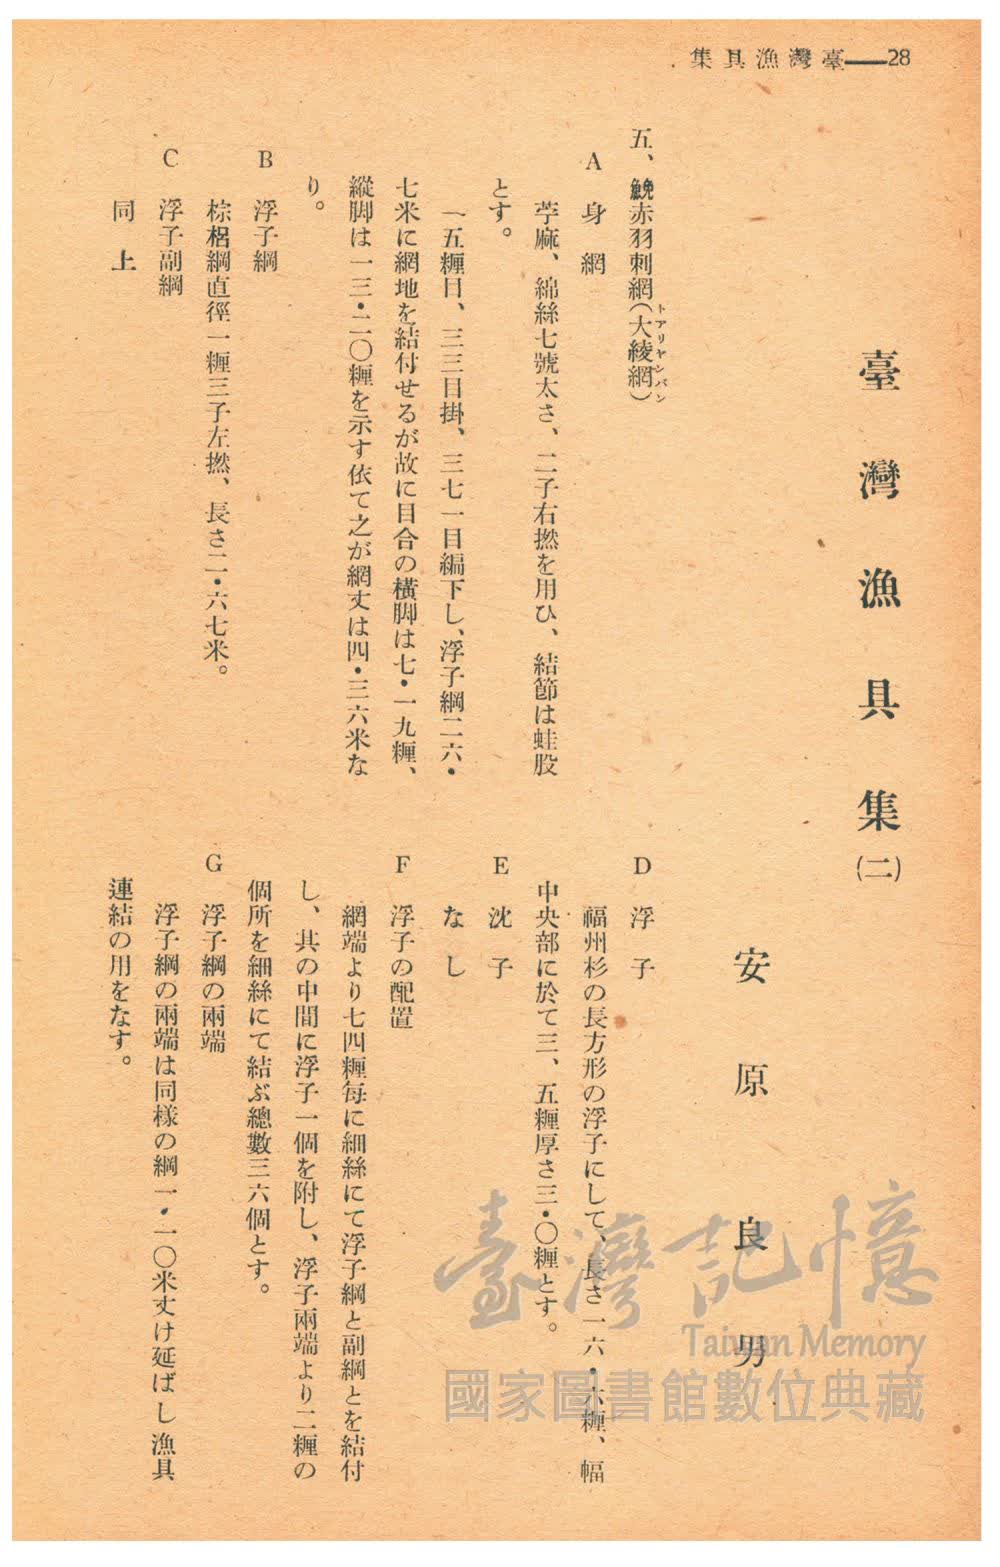 28――臺灣漁具集
臺灣漁具集(二)
安原良男
五、鮸赤羽刺網(大綾網)
トアリヤンバン
A 身網
苧麻、綿絲七號太さ、二子右撚を用ひ、結節は蛙股
とす。
一五糎目、三三目掛、三七一目編下し、浮子綱二六・
七米に網地を結付せるが故に目合の横脚は七・一九糎、
縱脚は一三・二〇糎を示す依て之が網丈は四・三六米な
り。
B 浮子綱
棕梠綱直徑一糎三子左撚、長さ二・六七米。
C 浮子副綱
同上
D 浮子
福州杉の長方形の浮子にして、長さ一六・六糎、幅
中央部に於て三、五糎厚さ三・〇糎とす。
E 沈子
なし
F 浮子の配置
網端より七四糎每に細絲にて浮子綱と副綱とを結付
し、其の中間に浮子一個を附し、浮子兩端より二糎の
個所を細絲にて結ぶ總數三六個とす。
G 浮子綱の兩端
浮子綱の兩端は同樣の綱一・一〇米丈け延ばし漁具
連結の用をなす。
臺灣記憶
Taiwan Memory
國家圖書館數位典藏